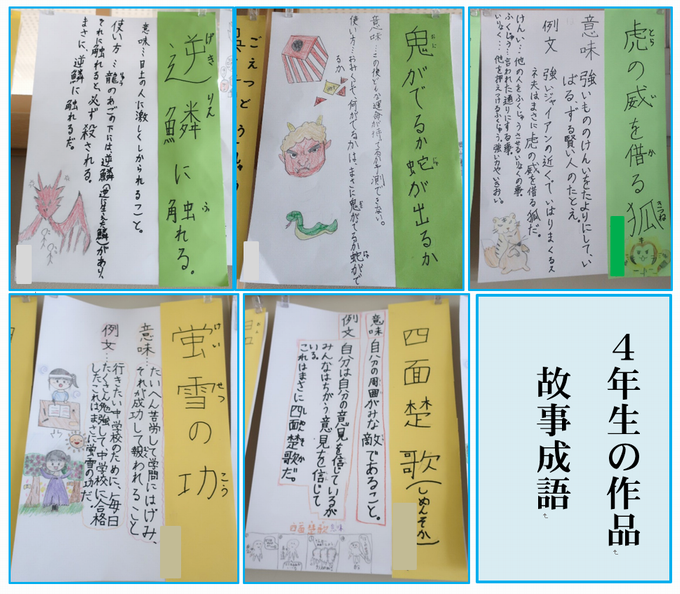 逆鱗に触れる。
げきりん
ふ
意味…目上の人に激しくしかられること。
使い方…龍のあごの下には、逆鱗(逆に生えた鱗)があり、
それに触れると、必ず殺される。
まさに、逆鱗に触れるだ。
鬼がでるか蛇が出るか
おに
じゃ
意味…この後どんな運命が待っているか予測できない。
使い方…おみくじで、何がでるかは、まさに鬼がでるか蛇がで
るか
虎の威を借る狐
とら
い
か
きつね
意味 強いもののけんいをたよりにして、い
ばる、ずる賢い人のたとえ。
例文 強いジャイアンの近くでいばりまくるス
ネ夫はまさに虎の威を借る狐だ。
けんい…他の人をふくじゅうさせるいりょくの事。
ふくじゅう…言われた通りにする事。
蛍雪の功
けい
せつ
こう
意味…たいへん苦労して学問にはげみ、
それが成功して報われること
例文…行きたい中学校のために、毎日
たくさん勉強して中学校に合格
した。これはまさに蛍雪の功だ。
四面楚歌(しめんそか)
意味 自分の周囲がみな敵であること。
例文 自分は自分の意見を信じているが
みんなはちがう意見を信じて
いる。
これはまさに四面楚歌だ。
4年生の作品
故事成語